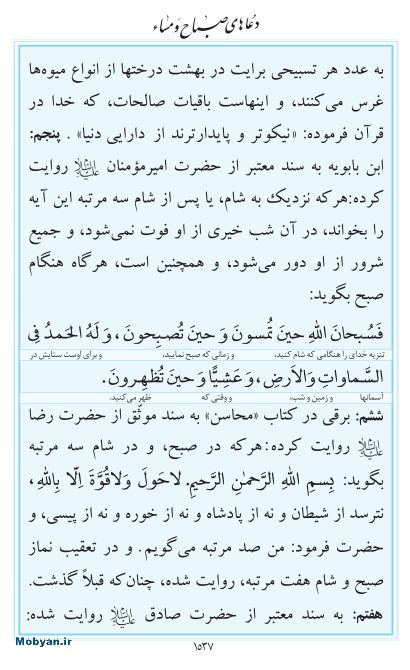 دعاهای صباح و مساء
به عدد هر تسبیحی برایت در بهشت درختها از انواع میوه‌ها
غرس می‌کنند، و اینهاست باقیات صالحات، که خدا در
قرآن فرموده: «نیکوتر و پایدارترند از دارایی دنیا» . پنجم:
ابن بابویه به سند معتبر از حضرت امیرمؤمنان علیه‌السلام روایت
کرده:هرکه نزدیک به شام، یا پس از شام سه مرتبه این آیه
را بخواند، در آن شب خیری از او فوت نمی‌شود، و جمیع
شرور از او دور می‌شود، و همچنین است، هرگاه هنگام
صبح بگوید:
فَسُبحانَ اللهِ حینَ تُمسونَ وَ حینَ تُصبِحونَ ، وَ لَهُ الحَمدُ فِی
تنزیه خدای را هنگامی که شام کنید، و زمانی که صبح نمایید، و برای اوست ستایش در
السَّماواتِ وَالاَرضِ ، وَ عَشِیًّا وَ حینَ تُظهِرونَ .
آسمانها و زمین و شب، و وقتی که ظهر می‌کنید.
ششم: برقی در کتاب «محاسن» به سند موثّق از حضرت رضا
علیه‌السلام روایت کرده:هرکه در صبح، و در شام سه مرتبه
بگوید: بِسمِ اللهِ الرَّحمٰنِ الرَّحیمِ. لاحَولَ وَلاقُوَّةَ اِلّا بِاللهِ،
نترسد از شیطان و نه از پادشاه و نه از خوره و نه از پیسی، و
حضرت فرمود: من صد مرتبه می‌گویم. و در تعقیب نماز
صبح و شام هفت مرتبه، روایت شده، چنان‌که قبلاً گذشت.
هفتم: به سند معتبر از حضرت صادق علیه‌السلام روایت شده:
Mobyan.ir
۱۵۳۷